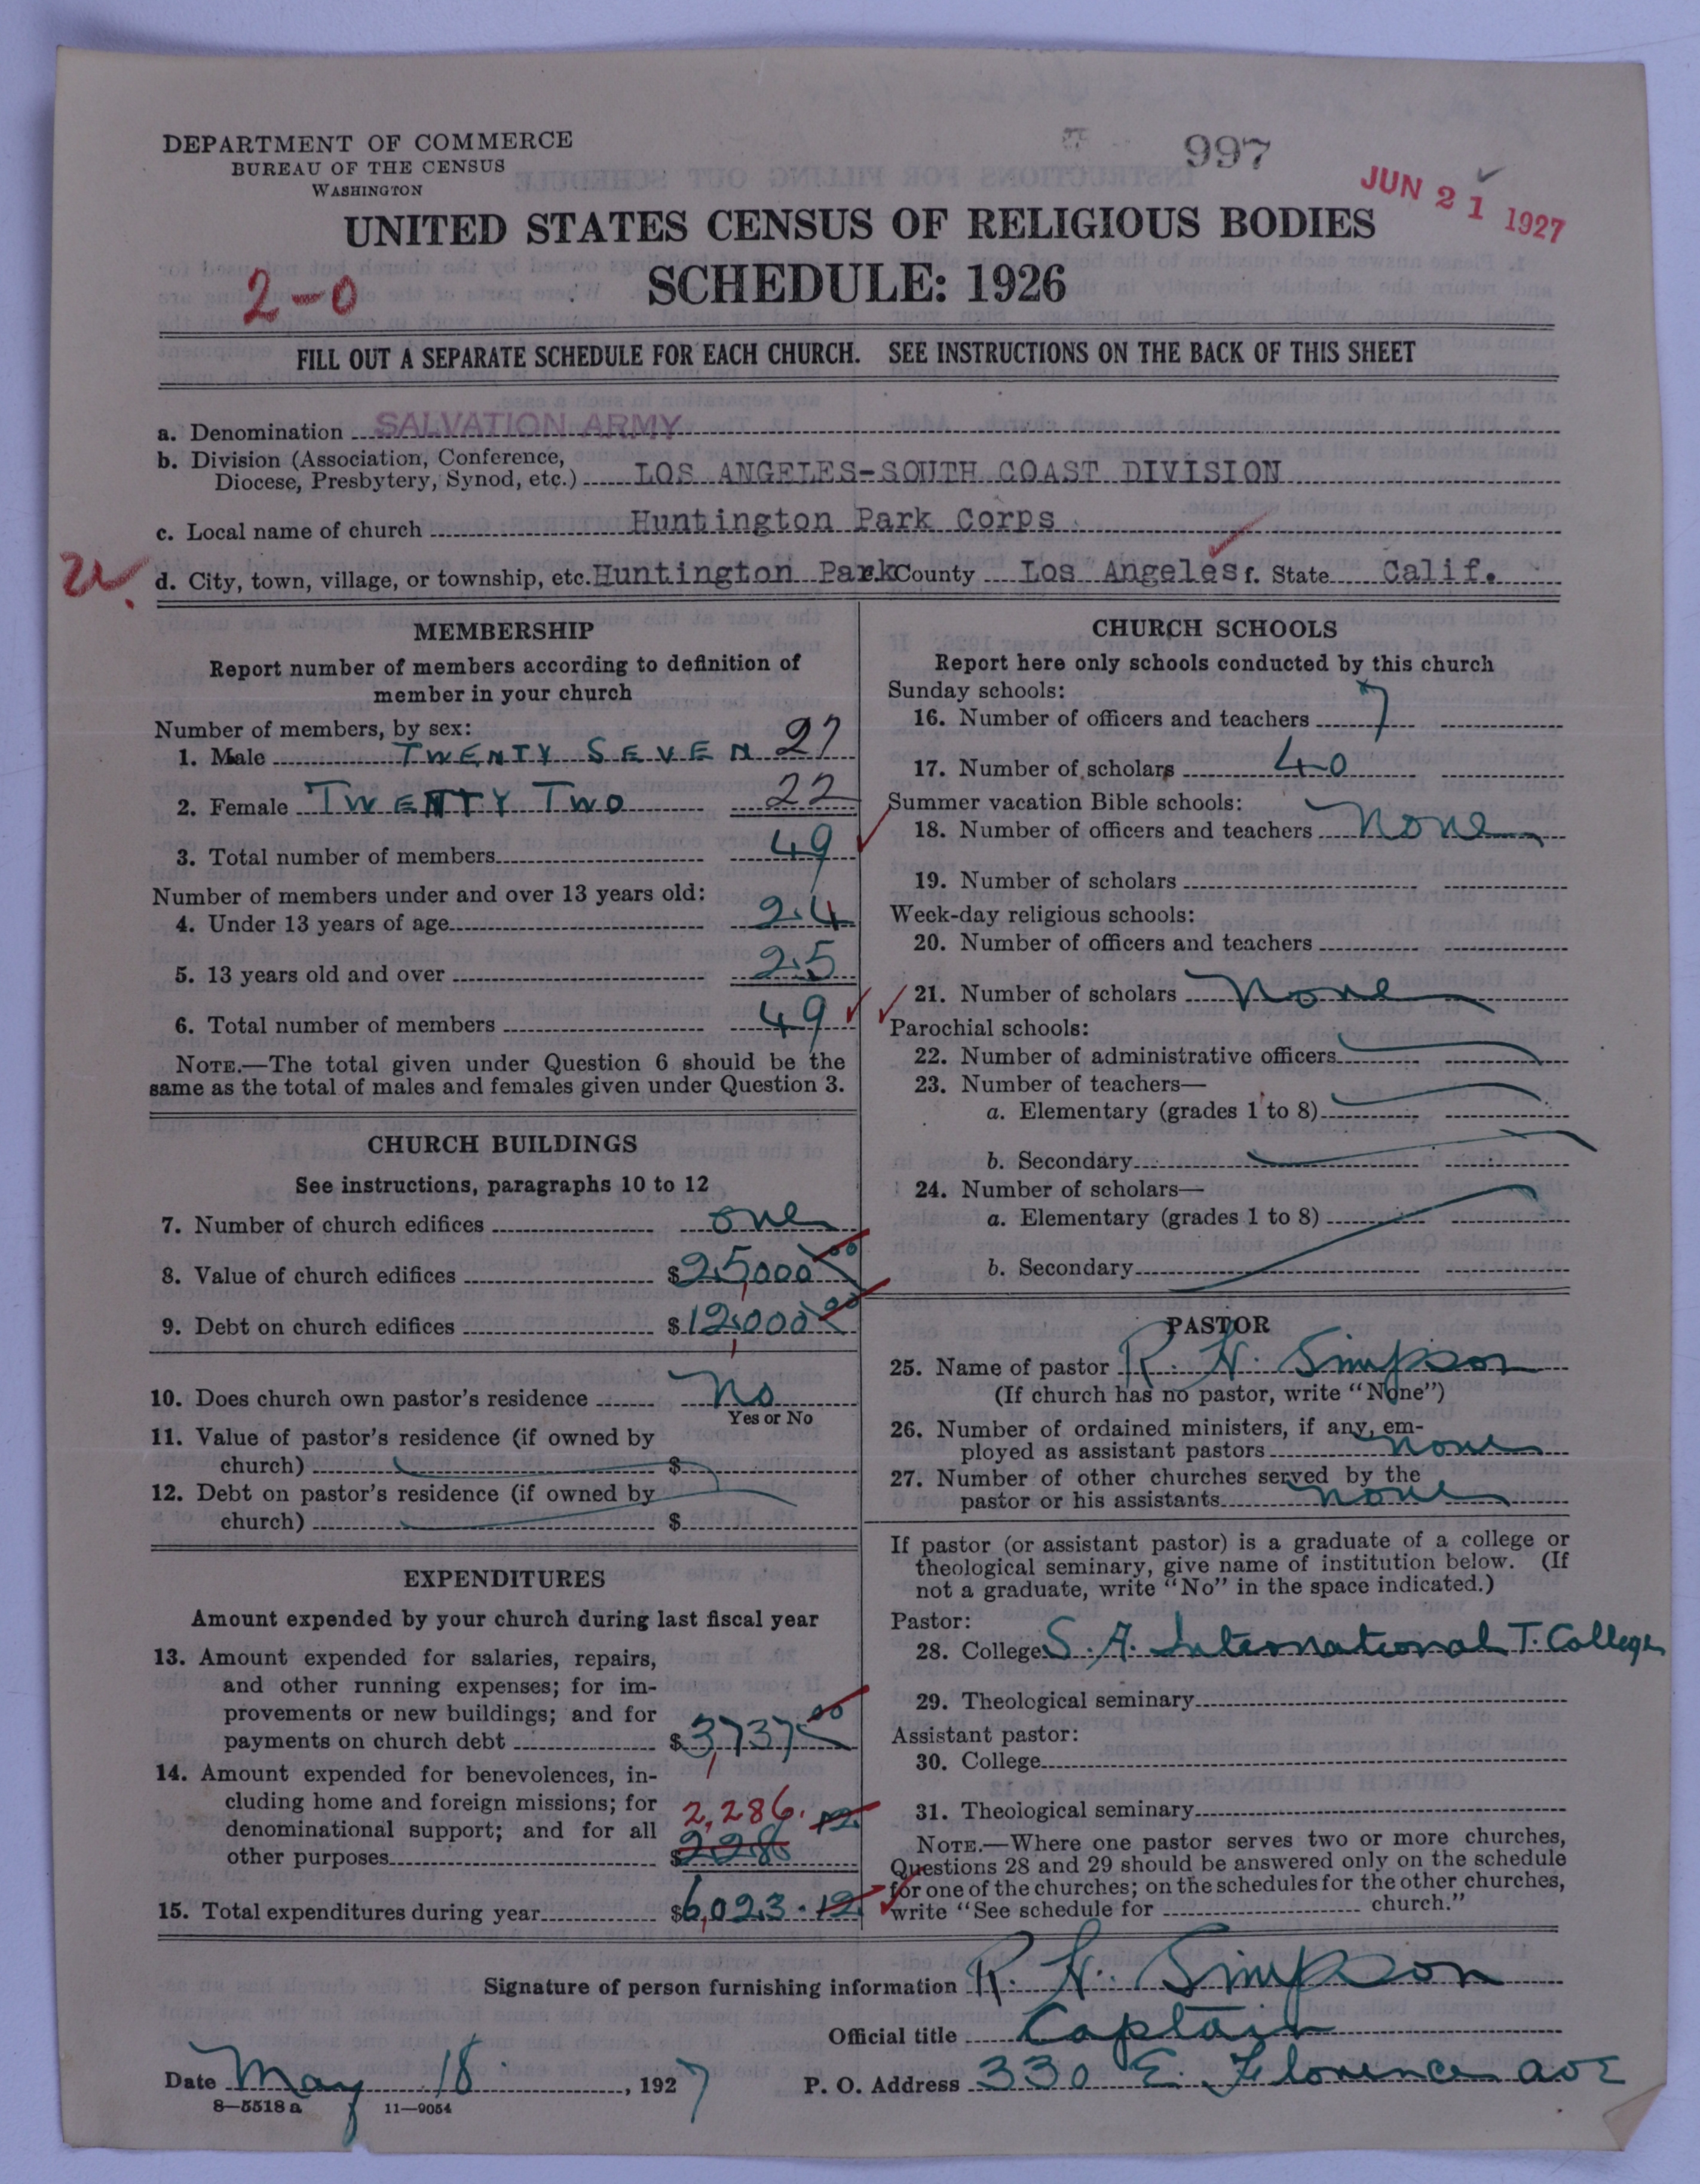 DEPARTMENT OF COMMERCE
BUREAU OF THE CENSUS
WASHINGTON
997
JUN 21 1927
UNITED STATES CENSUS OF RELIGIOUS BODIES
SCHEDULE: 1926
2-0
FILL OUT A SEPARATE SCHEDULE FOR EACH CHURCH. SEE INSTRUCTIONS ON THE BACK OF THIS SHEET
a. Denomination SALVATION ARMY
b. Division (Association, Conference,
Diocese, Presbytery, Synod, etc.) LOS ANGELES-SOUTH COAST DIVISION
c. Local name of church Huntington Park Corps
d. City, town, village, or township, etc. Huntington Park County Los Angeles f. State Calif.
MEMBERSHIP
Report number of members according to definition of
member in your church
Number of members, by sex:
1. Male TWENTY SEVEN 27
2. Female TWENTY TWO 22
3. Total number of members 49
Number of members under and over 13 years old:
4. Under 13 years of age 24
5. 13 years old and over 25
6. Total number of members 49
NOTE.—The total given under Question 6 should be the
same as the total of males and females given under Question 3.
CHURCH BUILDINGS
See instructions, paragraphs 10 to 12
7. Number of church edifices one
8. Value of church edifices $25,000 00
9. Debt on church edifices $12,000 00
10. Does church own pastor's residence no
Yes or No
11. Value of pastor's residence (if owned by
church) $
12. Debt on pastor's residence (if owned by
church) $
EXPENDITURES
Amount expended by your church during last fiscal year
13. Amount expended for salaries, repairs,
and other running expenses; for im-
provements or new buildings; and for
payments on church debt $3,737 00
14. Amount expended for benevolences, in-
cluding home and foreign missions; for 2,286. 12
denominational support; and for all
other purposes $2286
15. Total expenditures during year $6,023.12
CHURCH SCHOOLS
Report here only schools conducted by this church
Sunday schools:
16. Number of officers and teachers 7
17. Number of scholars 40
Summer vacation Bible schools:
18. Number of officers and teachers none
19. Number of scholars
Week-day religious schools:
20. Number of officers and teachers
21. Number of scholars none
Parochial schools:
22. Number of administrative officers
23. Number of teachers—
a. Elementary (grades 1 to 8)
b. Secondary
24. Number of scholars—
a. Elementary (grades 1 to 8)
b. Secondary
PASTOR
25. Name of pastor R. H. Simpson
(If church has no pastor, write "None")
26. Number of ordained ministers, if any, em-
ployed as assistant pastors none
27. Number of other churches served by the
pastor or his assistants none
If pastor (or assistant pastor) is a graduate of a college or
theological seminary, give name of institution below. (If
not a graduate, write "No" in the space indicated.)
Pastor:
28. College S. A. International T. College
29. Theological seminary
Assistant pastor:
30. College
31. Theological seminary
NOTE.—Where one pastor serves two or more churches,
Questions 28 and 29 should be answered only on the schedule
for one of the churches; on the schedules for the other churches,
write "See schedule for church."
Signature of person furnishing information R. H. Simpson
Official title Captain
Date May 18, 1927 P. O. Address 330 E. Florence ave
8—5518 a 11—9054